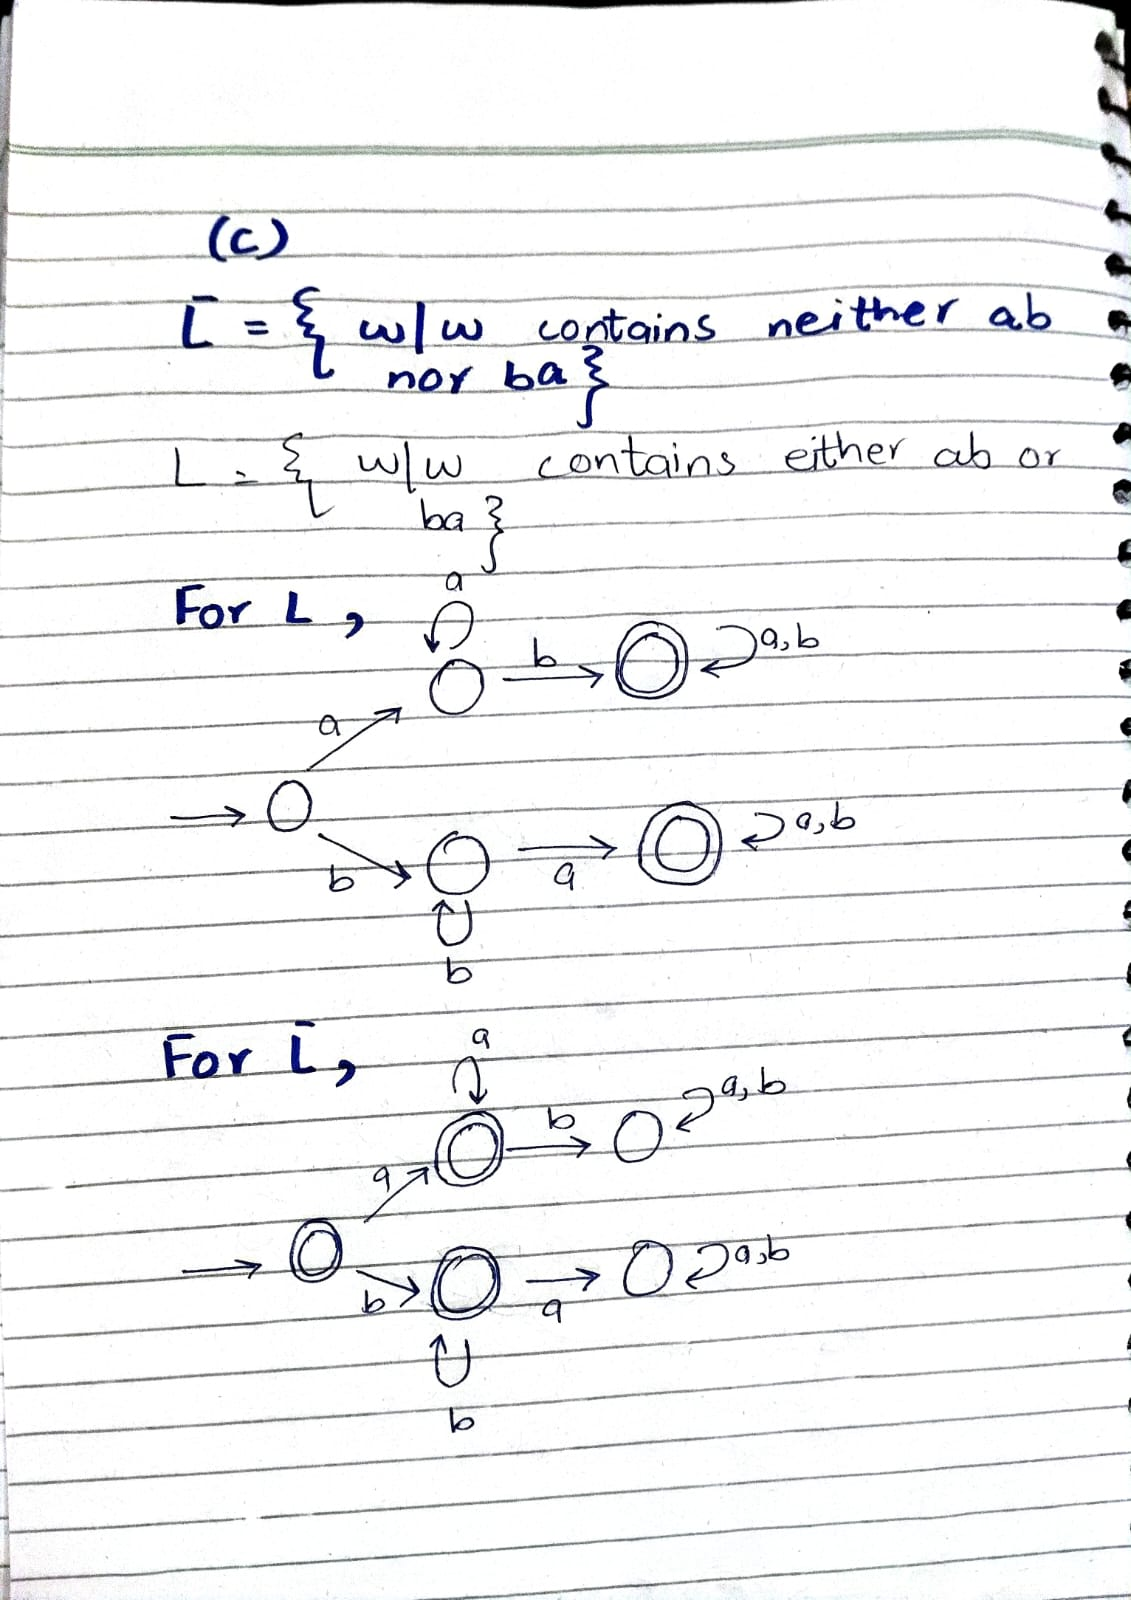 (c)
L̄ = { w/w contains neither ab
nor ba }
L = { w/w contains either ab or
ba }
For L,
a
b
a,b
a
a,b
b
a
b
For L̄,
a
a,b
b
a
a,b
b
a
b